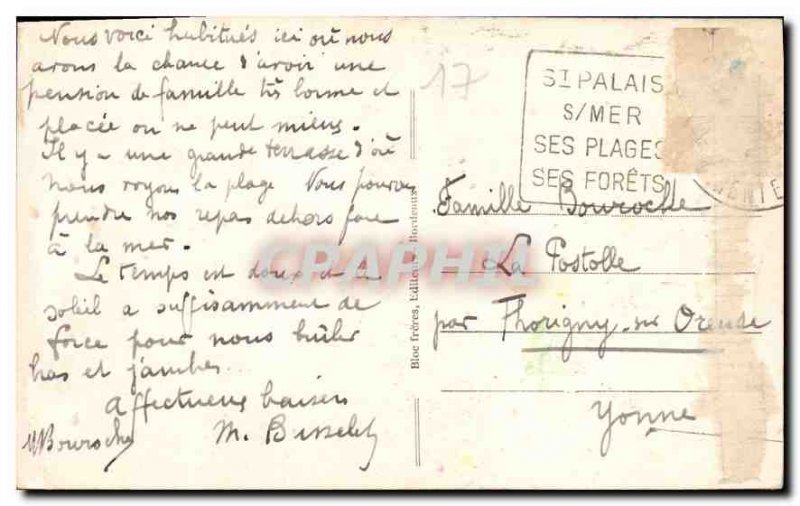 Nous voici habitués ici où nous
avons la chance d'avoir une
pension de famille très bonne et
placée on ne peut mieux.
Il y a une grande terrasse d'où
nous voyons la plage Nous pouvons
prendre nos repas dehors face
à la mer.
Le temps est doux et le
soleil a suffisamment de
force pour nous brûler
bras et jambes.
Affectueux baisers
M Bouroche M.
17
ST PALAIS
S/MER
SES PLAGES
SES FORÊTS
Famille Bouroche
La Postolle
par Thorigny sur Oreuse
Yonne
Bloc frères, Editeurs, Bordeaux
CPAPHIL